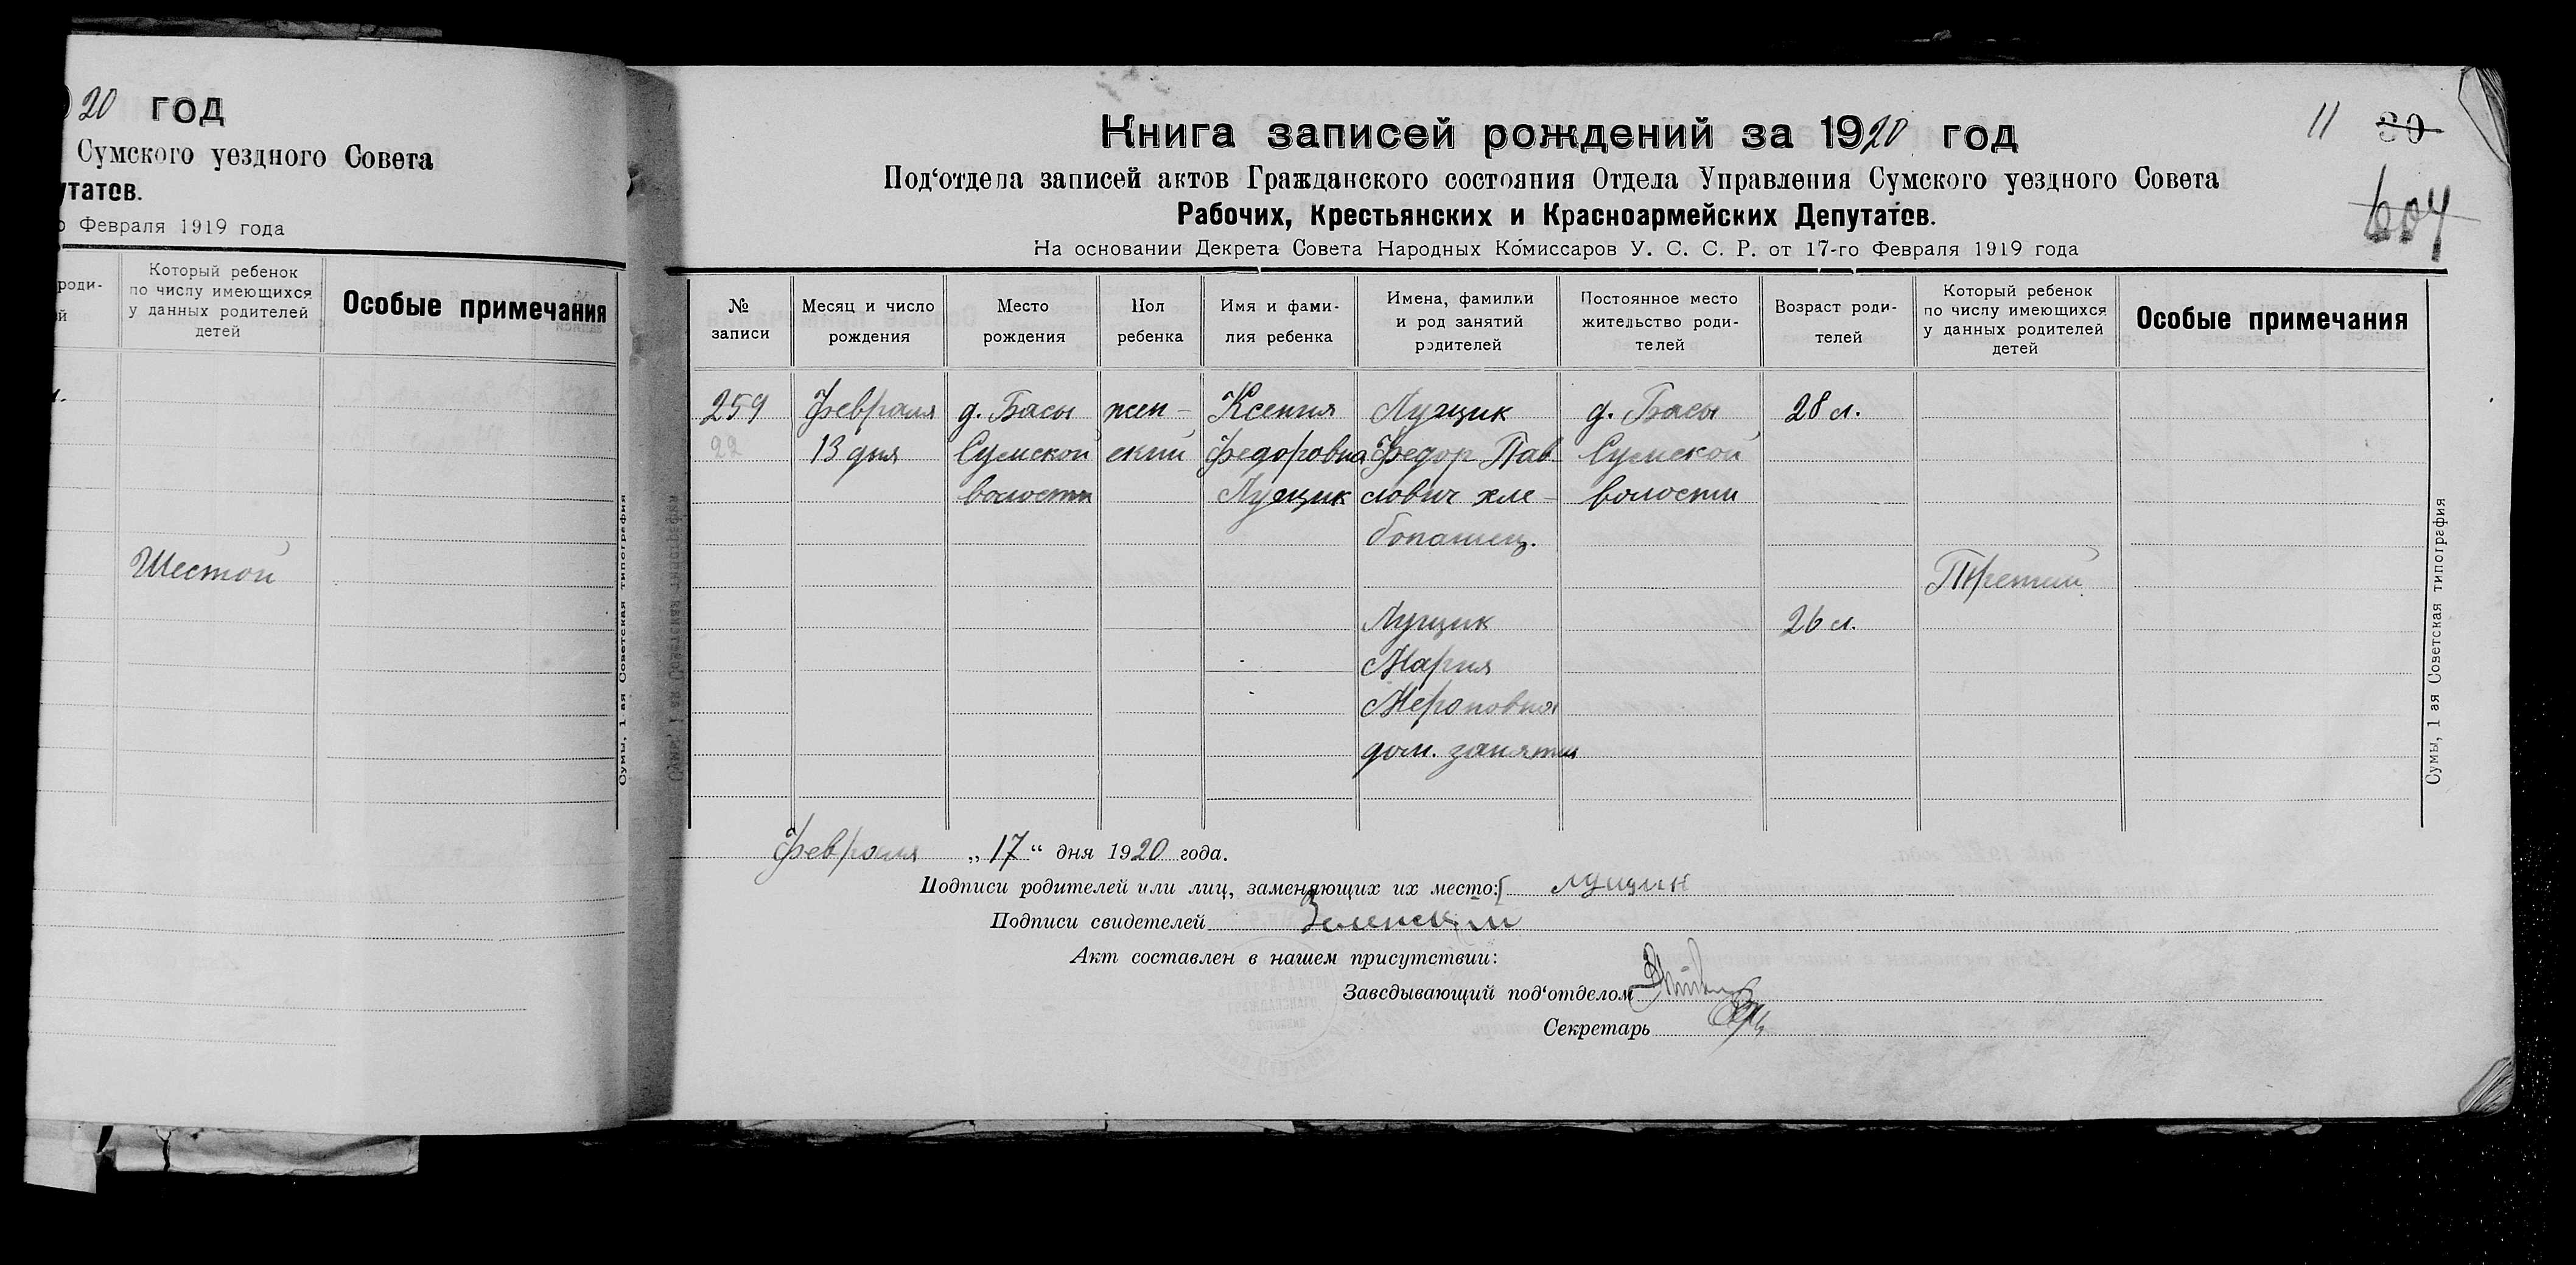 20 год
Сумского уездного Совета
утатов.
о Февраля 1919 года
роди-
й
Который ребенок
по числу имеющихся
у данных родителей
детей
Особые примечания
Шестой
Сумы, 1 ая Советская типография
Книга записей рождений за 1920 год
11 30
604
Под‘отдела записей актов Гражданского состояния Отдела Управления Сумского уездного Совета
Рабочих, Крестьянских и Красноармейских Депутатов.
На основании Декрета Совета Народных Комиссаров У. С. С. Р. от 17-го Февраля 1919 года
№
записи
Месяц и число
рождения
Место
рождения
Пол
ребенка
Имя и фами-
лия ребенка
Имена, фамилии
и род занятий
родителей
Постоянное место
жительство роди-
телей
Возраст роди-
телей
Который ребенок
по числу имеющихся
у данных родителей
детей
Особые примечания
259 Февраля д. Басы жен- Ксения Лущик д. Басы 28 л.
22 13 дня Сумской ский Федоровна Федор Пав Сумской
волости Лущик лович хле- волости
бопашец.
Третий
Лущик 26 л.
Мария
Мероповна
дом. занятия
Сумы, 1 ая Советская типография
Февраля „17“ дня 1920 года.
Подписи родителей или лиц, заменяющих их место: Лущик
Подписи свидетелей Зеленский
Акт составлен в нашем присутствии:
Заведывающий под‘отделом
Секретарь